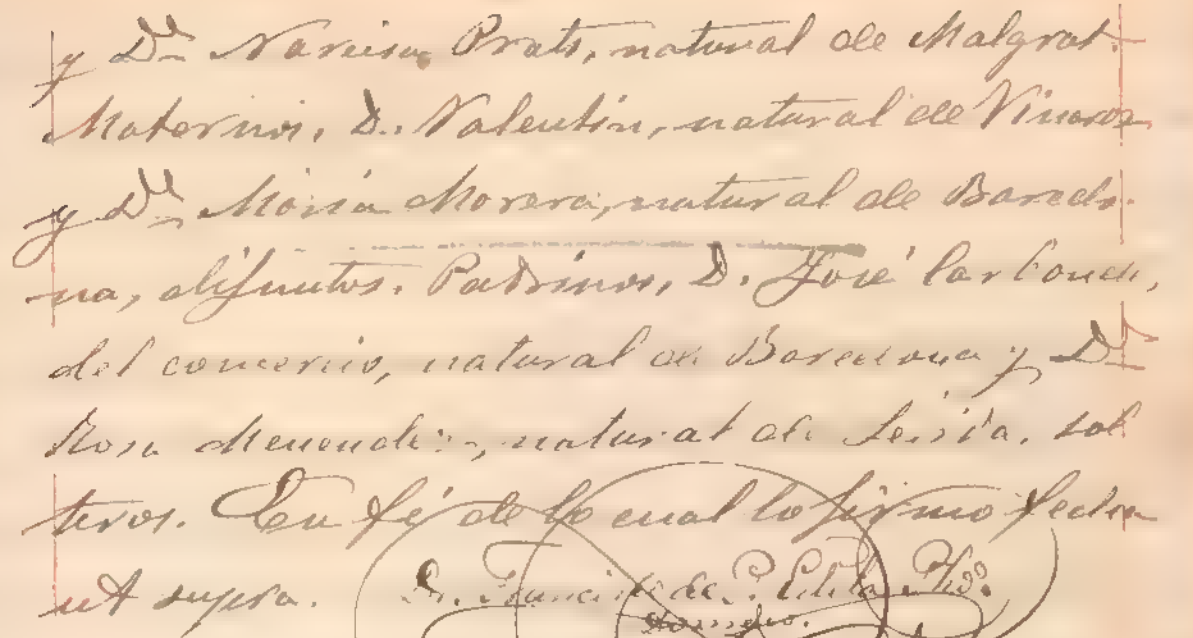 y Dª Narcisa Prats, natural de Malgrat.
Maternos, D. Valentin, natural de Vinaroz
y Dª Maria Morera, natural de Barcelo-
na, difuntos. Padrinos, D. José
del comercio, natural de Barcelona y Dª
Rosa Menendez, natural de sol
teros. En fé de lo cual lo firmo fecha
ut supra. Dr. Francisco de P. Pbro.